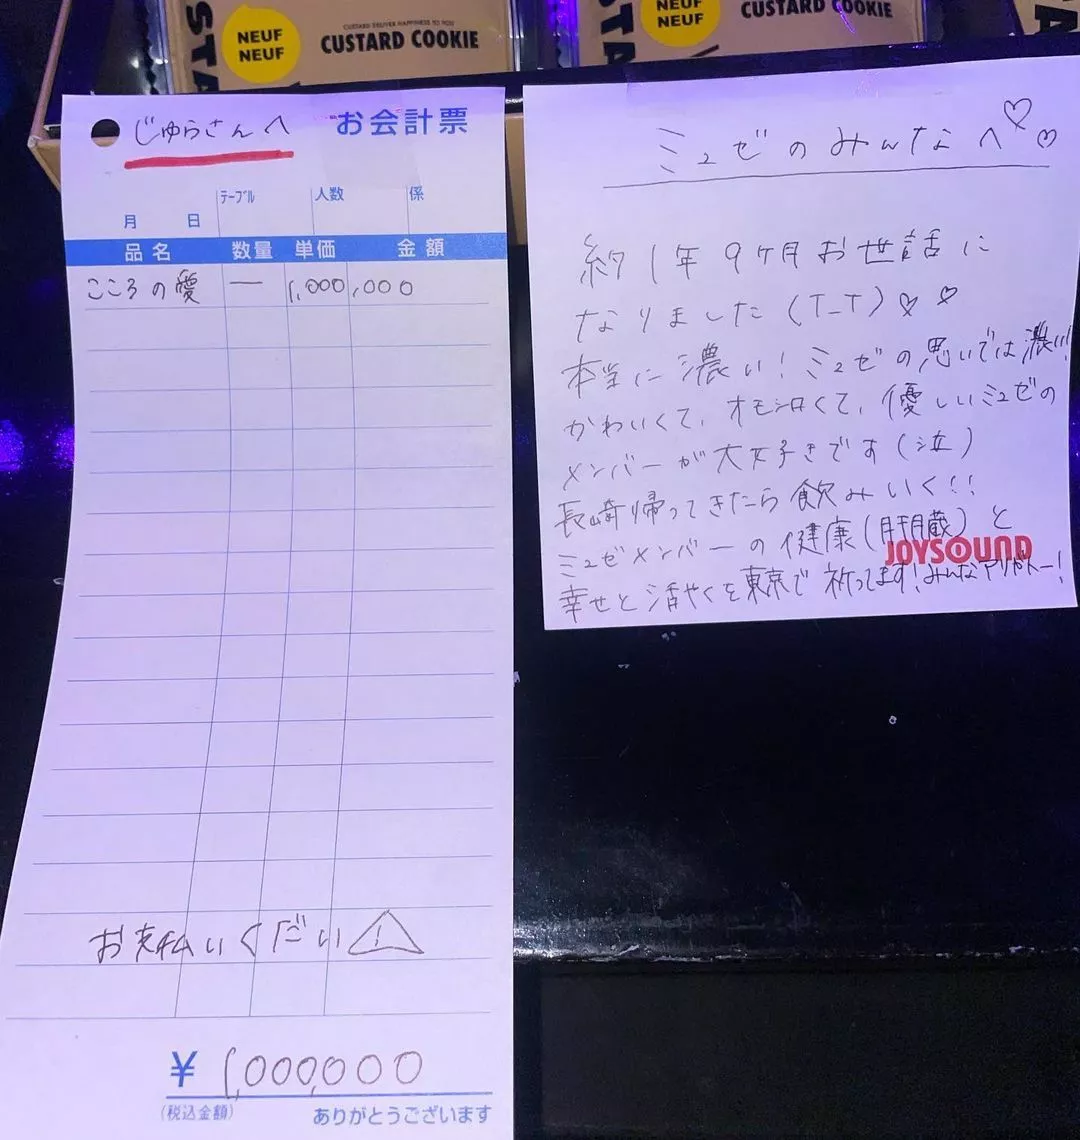 STA
NEUF
NEUF
CUSTARD DELIVER HAPPINESS TO YOU
CUSTARD COOKIE
NEUF
NEUF
CUSTARD COOKIE
STA
じゅらさんへ
お会計票
月 日 テーブル 人数 係
品名 数量 単価 金額
こころの愛 一 1,000,000
お支払いくだい
¥ 1,000,000
(税込金額) ありがとうございます
ミュゼのみんなへ♡♡
約1年9ヶ月お世話に
なりました(T_T)♡♡
本当に濃い!ミュゼの思いでは濃い!
かわいくて、オモシロくて、優しいミュゼの
メンバーが大好きです(泣)
長崎帰ってきたら飲みいく!!
ミュゼメンバーの健康(肝臓)と
JOYSOUND
幸せと活やくを東京で祈ってます!みんなアリガトー!